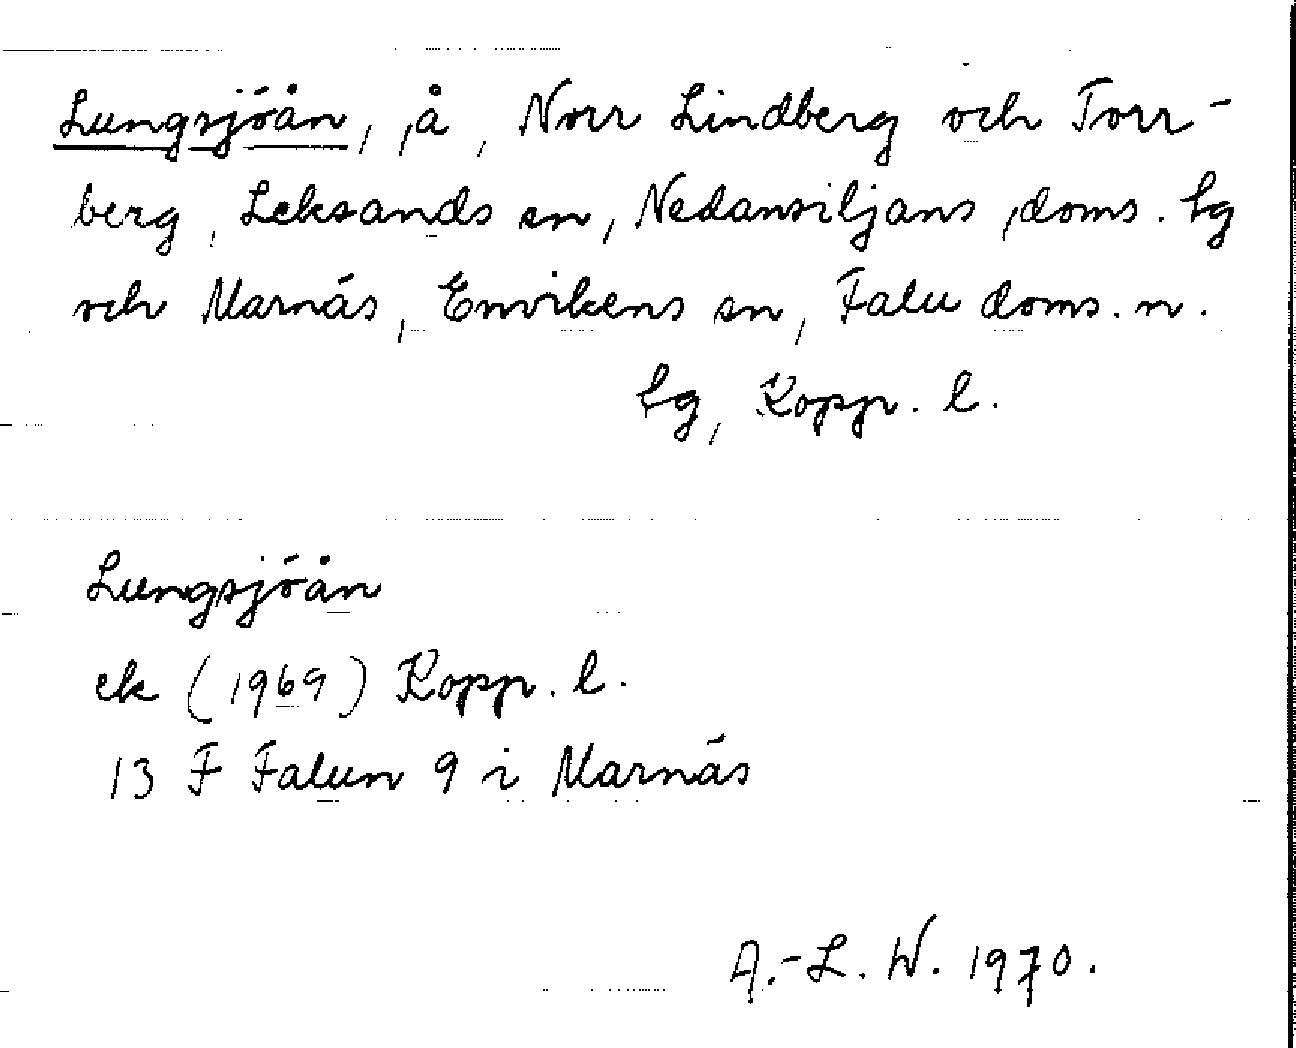 Lungsjöån, å, Norr Lindberg och Torr-
berg, Leksands sn, Nedansiljans doms. lg
och Marnäs, Envikens sn, Falu doms. n.
lg, Kopp. l.
Lungsjöån
ek (1969) Kopp. l.
13 F Falun 9 i Marnäs
A.-L. W. 1970.